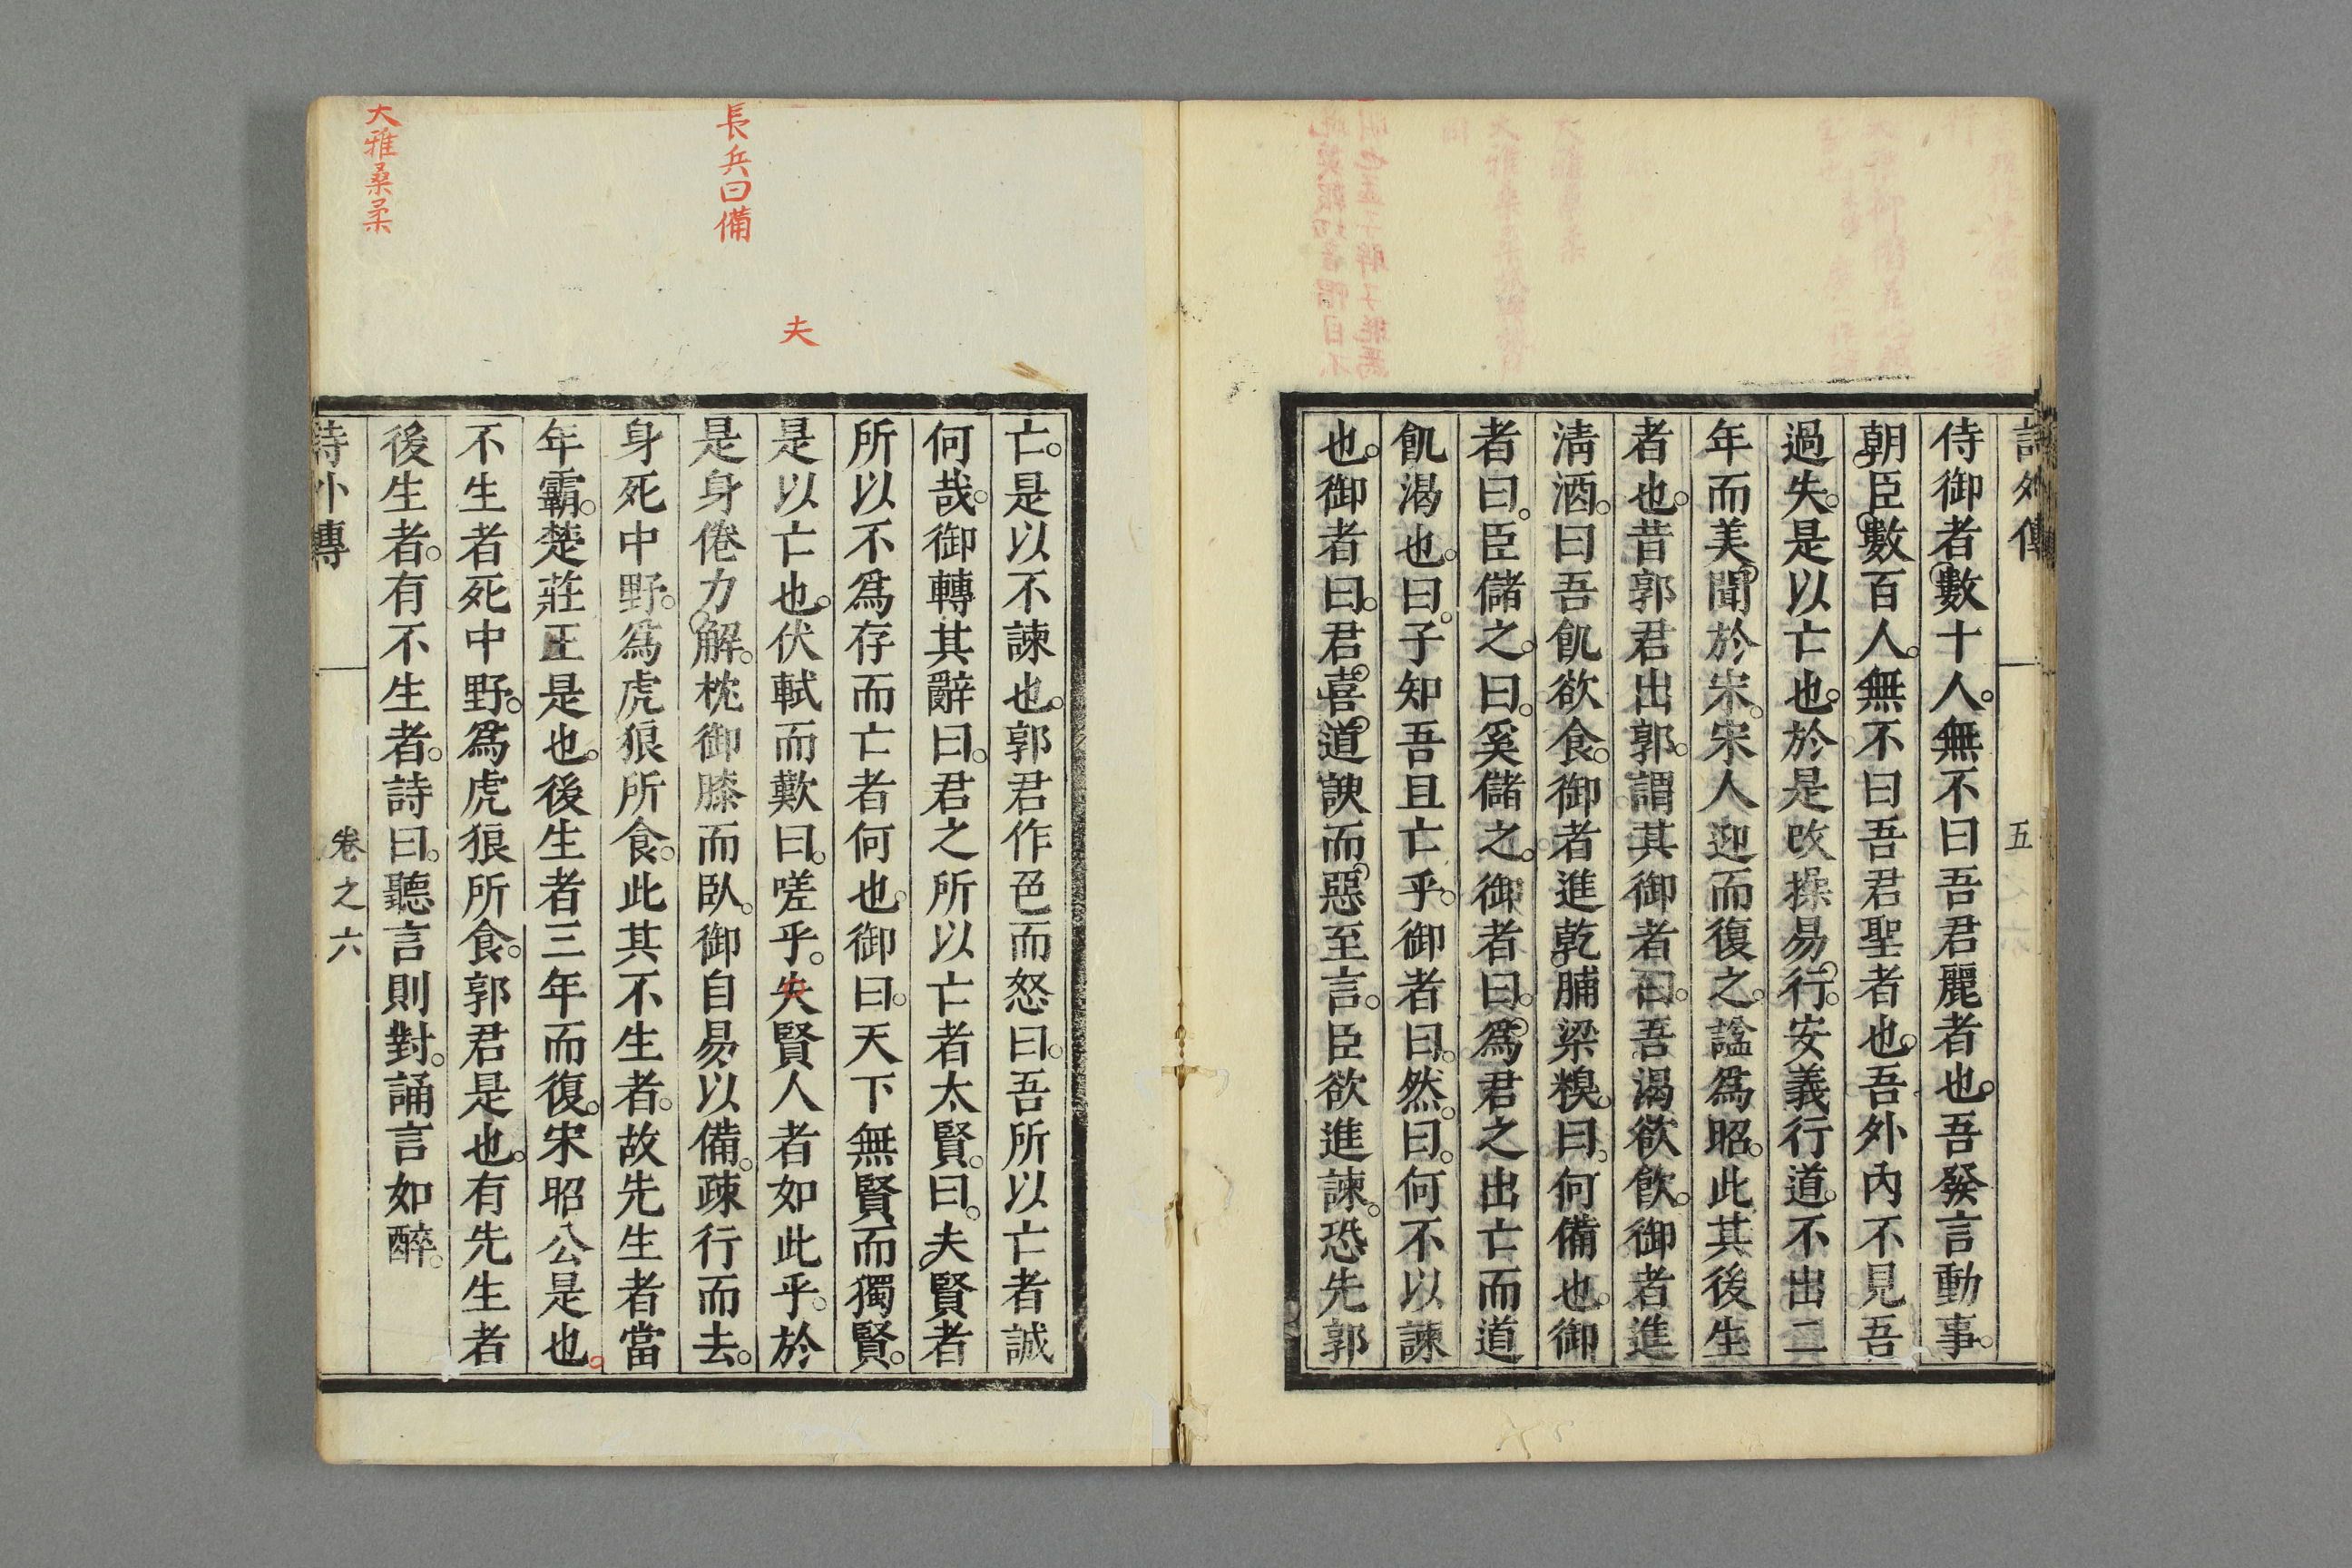 詩外傳
五
侍御者數十人。無不曰吾君麗者也。吾發言動事。
朝臣數百人。無不曰吾君聖者也。吾外內不見吾
過失。是以亡也。於是改操易行。安義行道。不出二
年而美聞於宋。宋人迎而復之。諡爲昭。此其後生
者也。昔郭君出郭。謂其御者曰。吾渴欲飮。御者進
淸酒。曰吾飢欲食。御者進乾脯粱糗。曰。何備也。御
者曰。臣儲之。曰。奚儲之。御者曰。爲君之出亡而道
飢渴也。曰。子知吾且亡乎。御者曰。然。曰。何不以諫
也。御者曰。君喜道諛而惡至言。臣欲進諫。恐先郭
亡。是以不諫也。郭君作色而怒曰。吾所以亡者誠
何哉。御轉其辭曰。君之所以亡者太賢。曰。夫賢者
所以不爲存而亡者何也。御曰。天下無賢而獨賢。
夫
是以亡也。伏軾而歎曰。嗟乎。失賢人者如此乎。於
長兵曰備
是身倦力解。枕御膝而臥。御自易以備。疎行而去。
身死中野。爲虎狼所食。此其不生者。故先生者當
年霸。楚莊王是也。後生者三年而復。宋昭公是也。
不生者死中野。爲虎狼所食。郭君是也。有先生者
大雅桑柔
後生者。有不生者。詩曰。聽言則對。誦言如醉。
詩外傳
卷之六